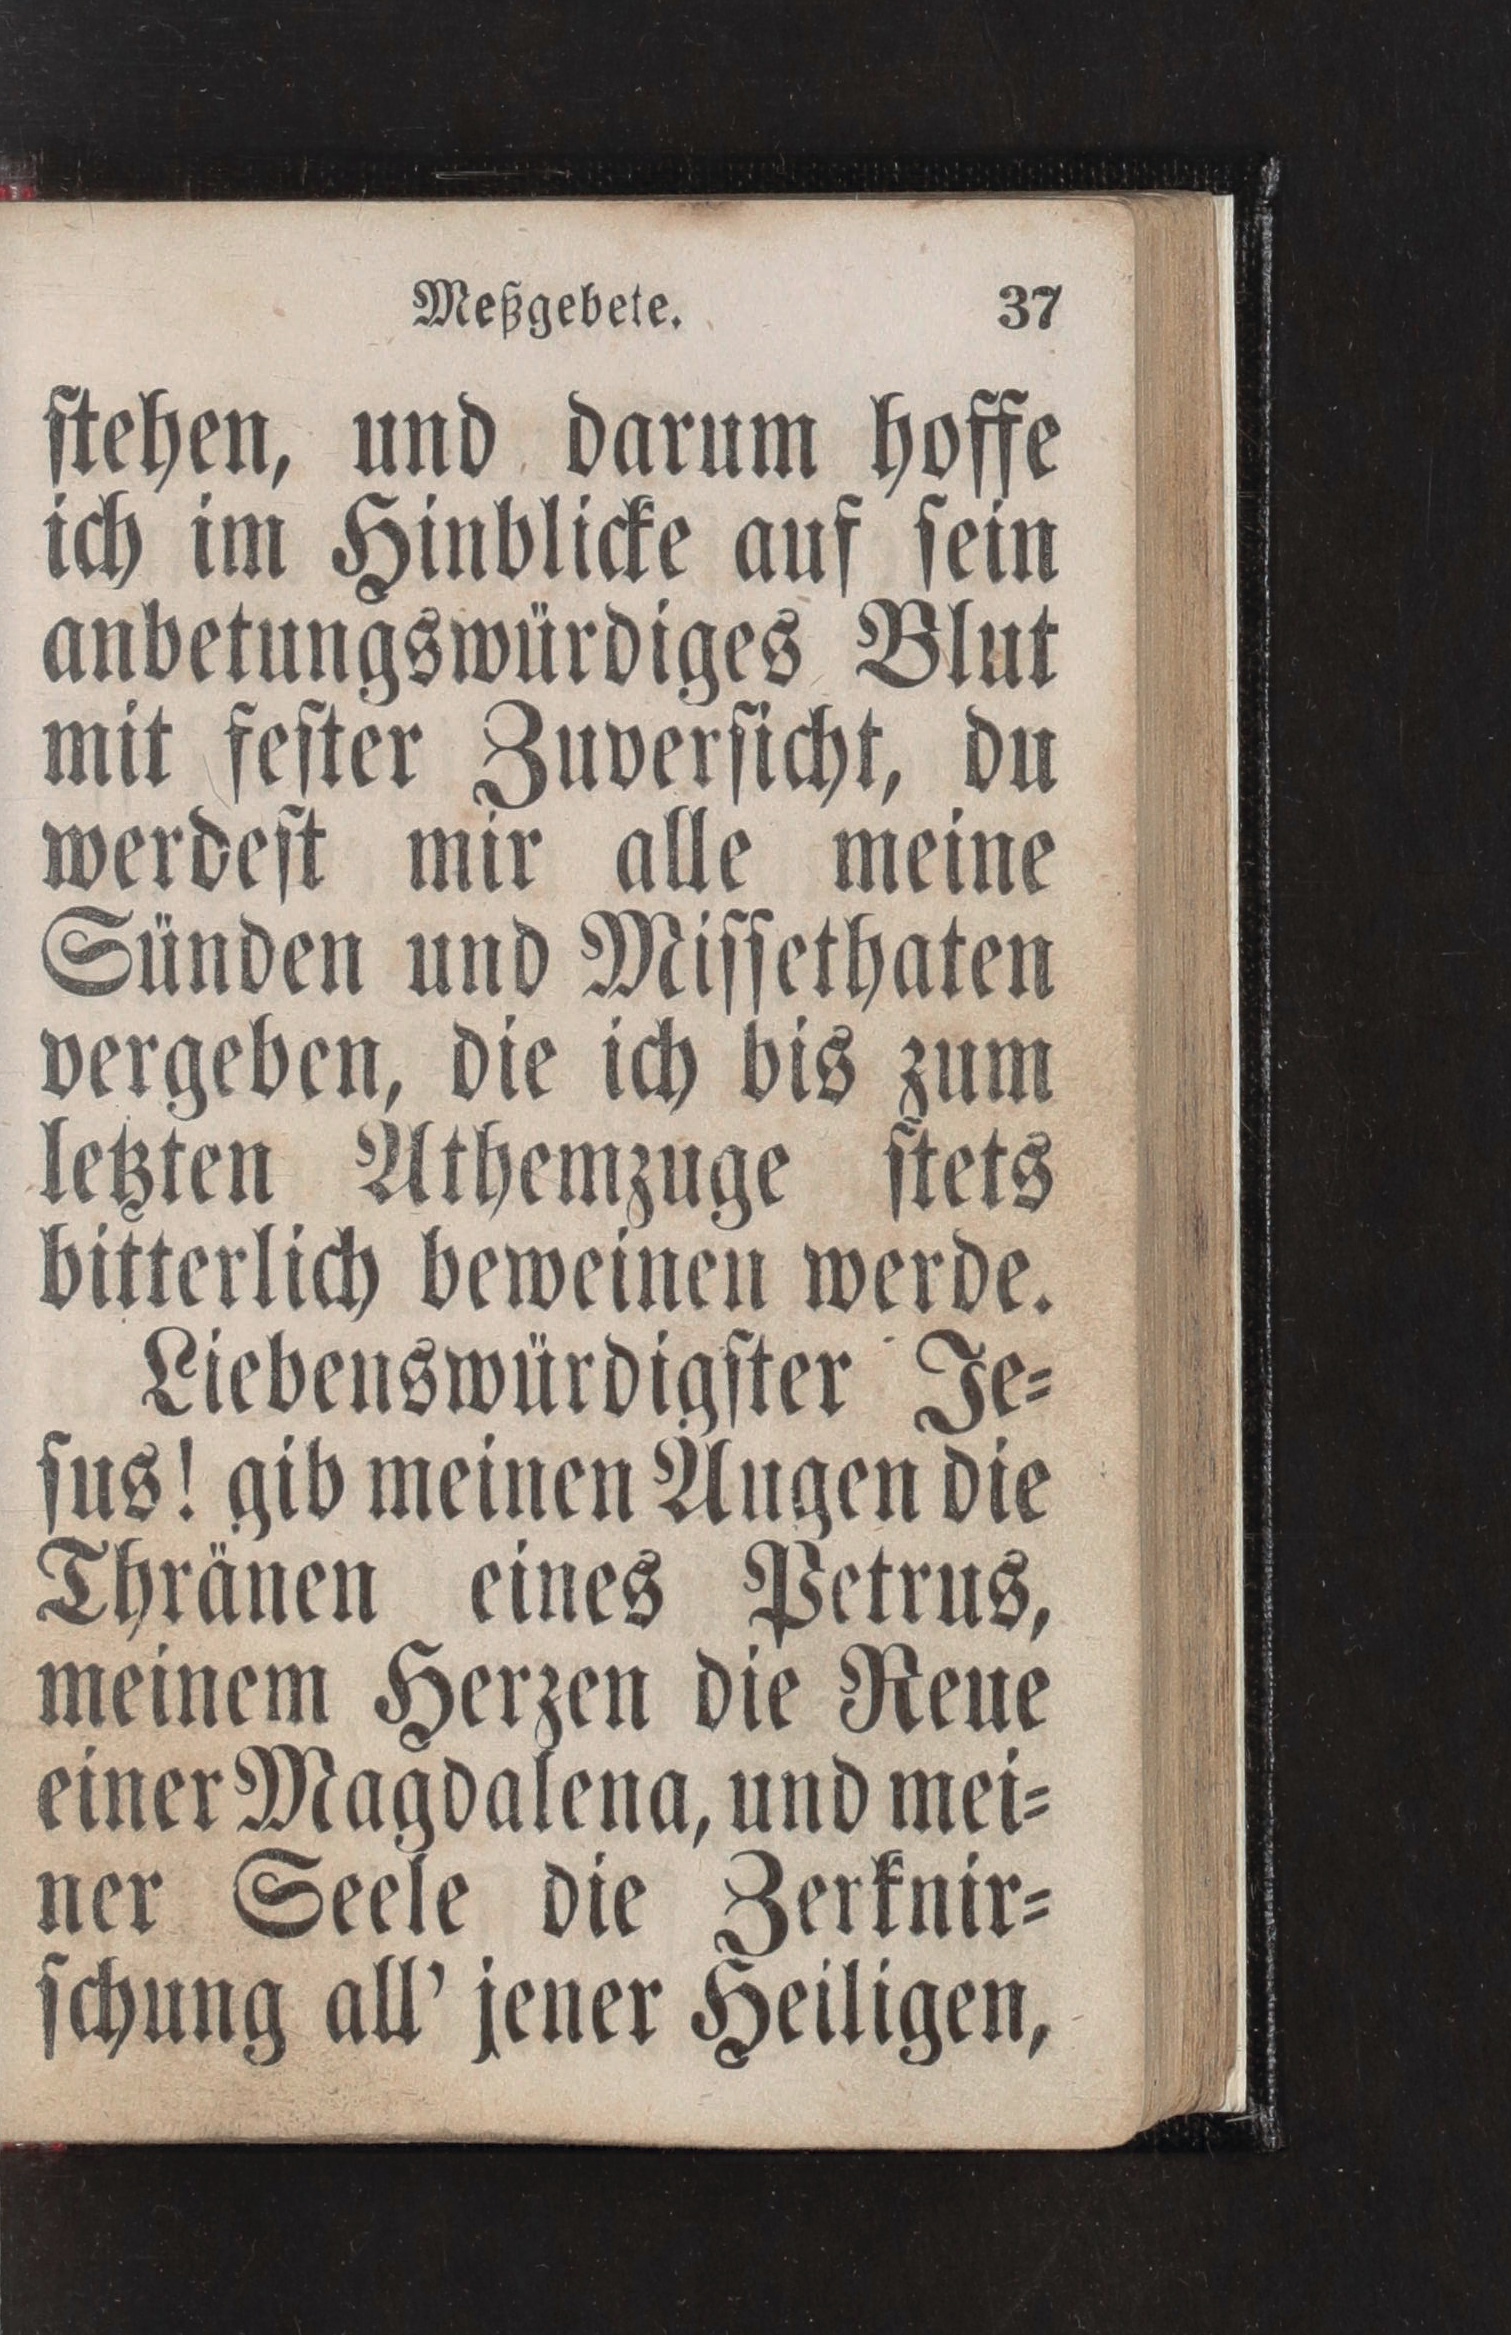 Meßgebete. 37
stehen, und darum hoffe
ich im Hinblicke auf sein
anbetungswürdiges Blut
mit fester Zuversicht, du
werdest mir alle meine
Sünden und Missethaten
vergeben, die ich bis zum
letzten Athemzuge stets
bitterlich beweinen werde.
Liebenswürdigster Je-
sus! gib meinen Augen die
Thränen eines Petrus,
meinem Herzen die Reue
einer Magdalena, und mei-
ner Seele die Zerknir-
schung all' jener Heiligen,